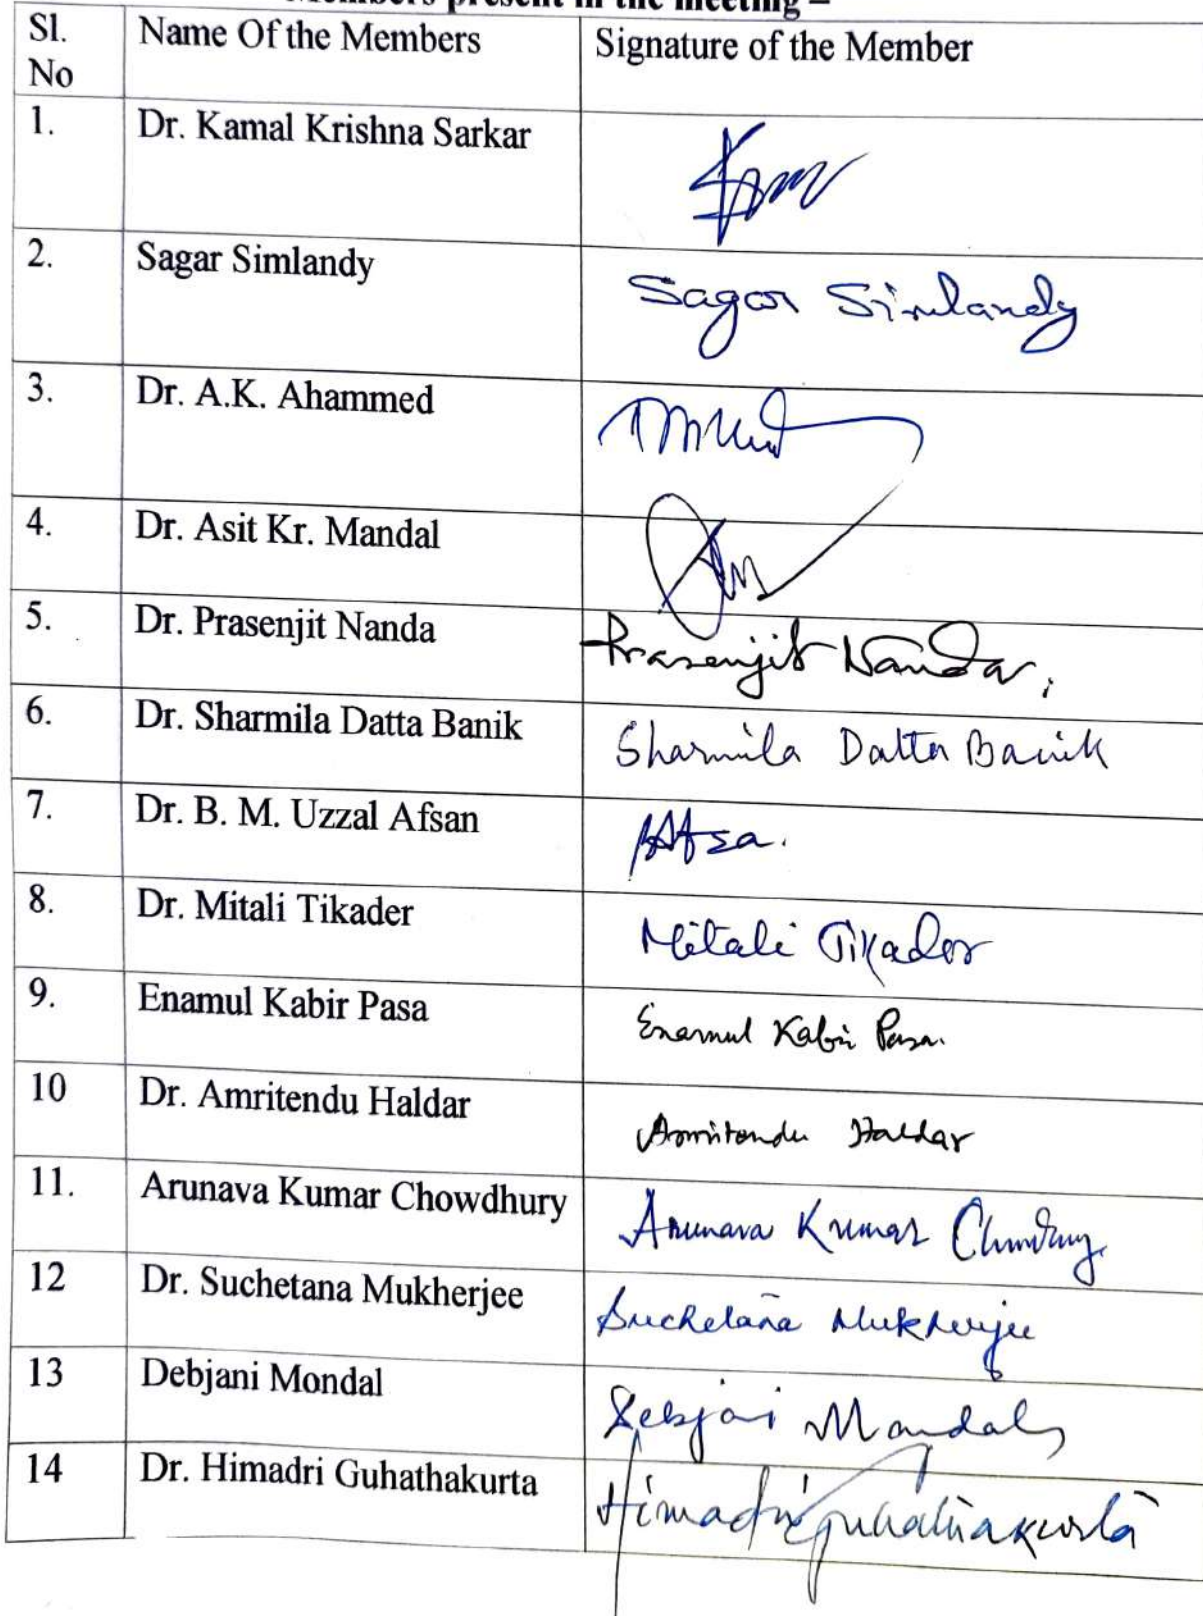 Members present in the meeting –
Sl. No Name Of the Members Signature of the Member
1. Dr. Kamal Krishna Sarkar
2. Sagar Simlandy Sagar Simlandy
3. Dr. A.K. Ahammed
4. Dr. Asit Kr. Mandal
5. Dr. Prasenjit Nanda Prasenjit Nanda.
6. Dr. Sharmila Datta Banik Sharmila Datta Banik
7. Dr. B. M. Uzzal Afsan
8. Dr. Mitali Tikader Mitali Tikader
9. Enamul Kabir Pasa Enamul Kabir Pasa.
10 Dr. Amritendu Haldar Amritendu Haldar
11. Arunava Kumar Chowdhury Arunava Kumar Chowdhury
12 Dr. Suchetana Mukherjee Suchetana Mukherjee
13 Debjani Mondal Debjani Mandal
14 Dr. Himadri Guhathakurta Himadri Guhathakurta